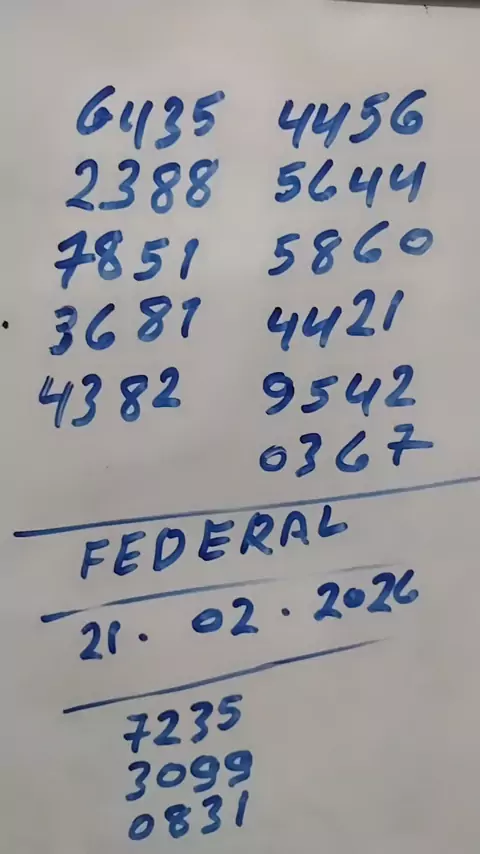 6435 4456
2388 5644
7851 5860
3681 4421
4382 9542
0367
FEDERAL
21. 02. 2026
7235
3099
0831